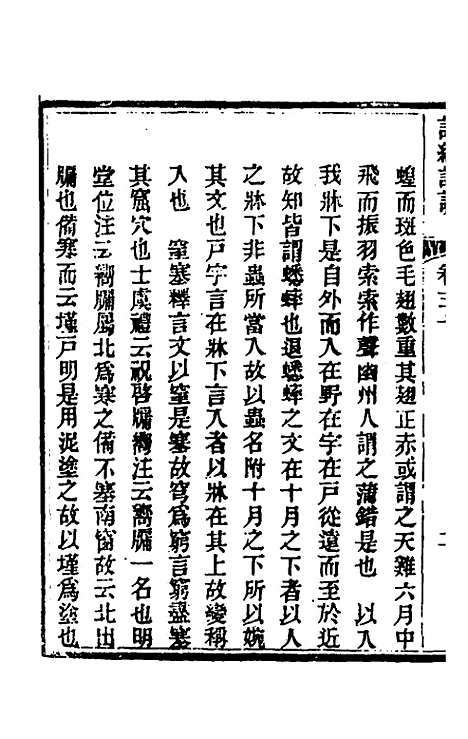 蝗而斑色毛翅數重其翅正赤或謂之天雞六月中
飛而振羽索索作聲幽州人謂之蒲錯是也　以入
我牀下是自外而入在野在宇在戸從遠而至於近
故知皆謂蟋蟀也退蟋蟀之文在十月之下者以人
之牀下非蟲所當入故以蟲名附十月之下所以婉
其文也戸宇言在牀下言入者以牀在其上故變稱
入也　窒塞釋言文以窒是塞故穹爲窮言窮盡塞
其窟穴也士虞禮云祝啓牖嚮注云嚮牖一名也明
堂位注云嚮牖屬北爲寒之備不塞南窗故云北出
牖也備寒而云墐戸明是用泥塗之故以墐爲塗也